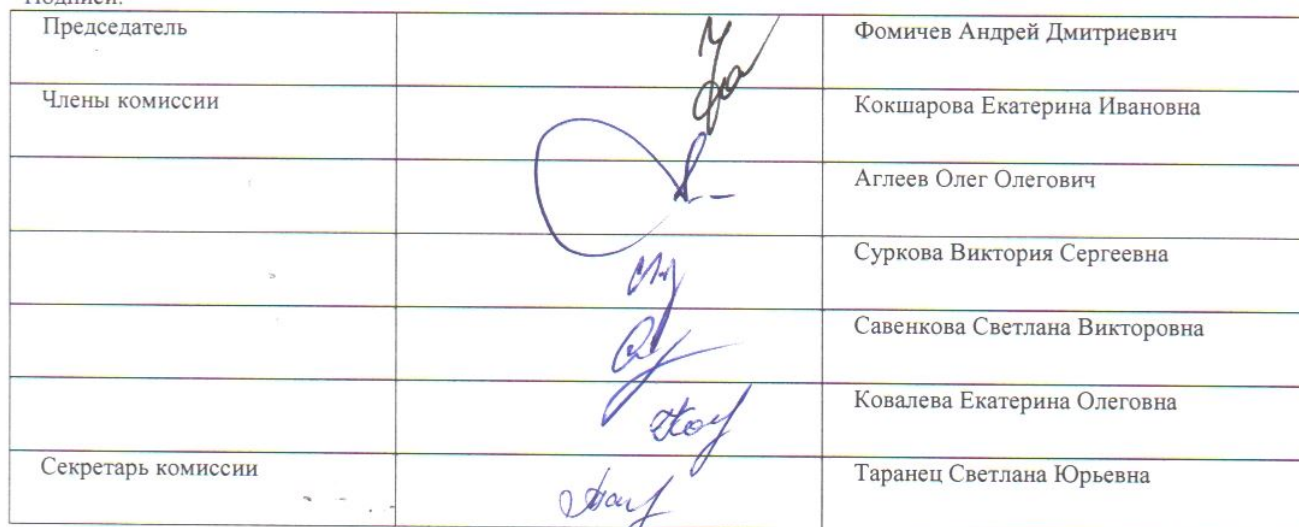 Подписи:
Председатель Фомичев Андрей Дмитриевич
Члены комиссии Кокшарова Екатерина Ивановна
Аглеев Олег Олегович
Суркова Виктория Сергеевна
Савенкова Светлана Викторовна
Ковалева Екатерина Олеговна
Секретарь комиссии Таранец Светлана Юрьевна